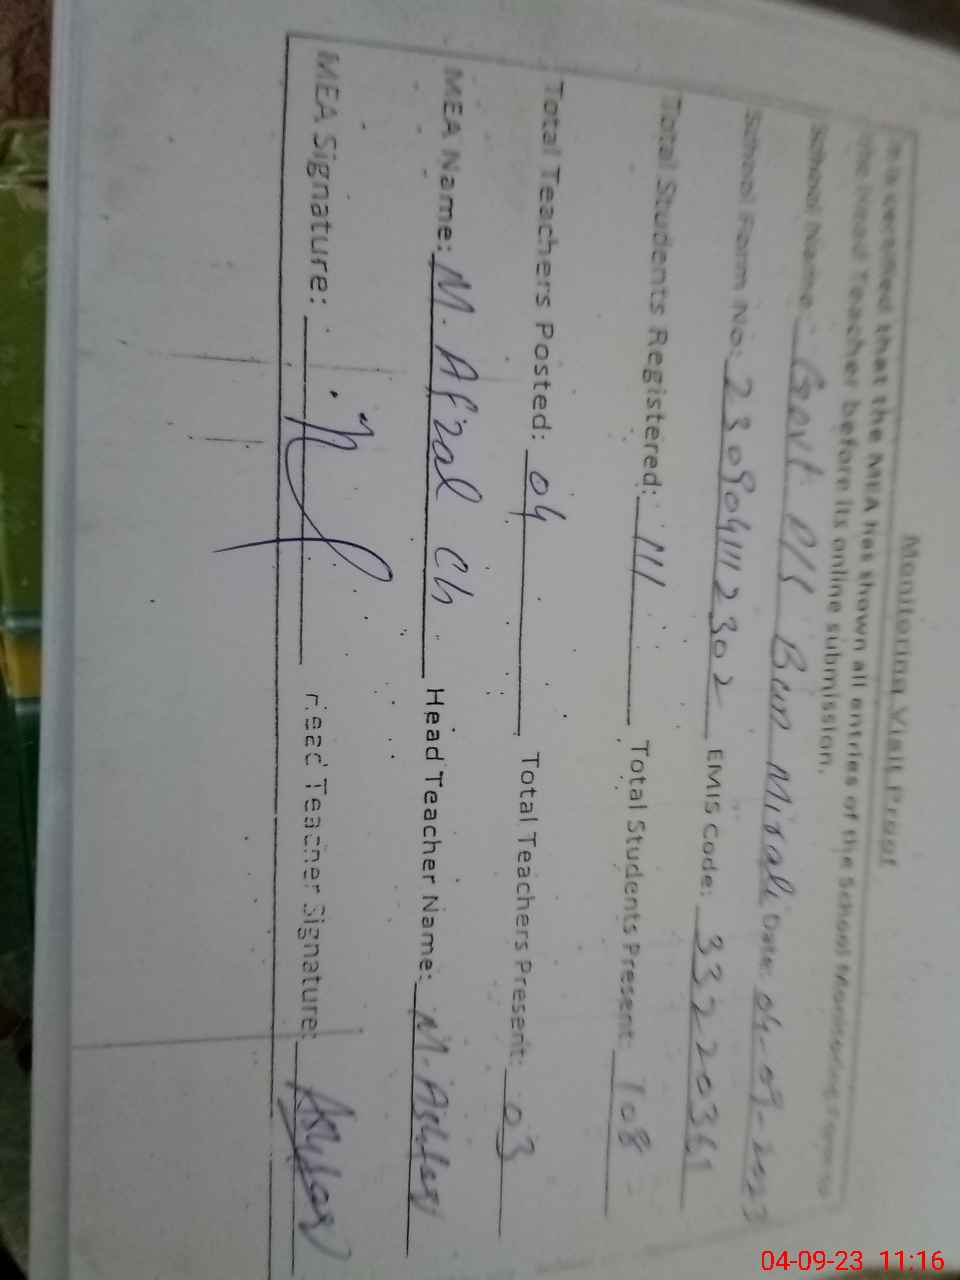 Monitoring Visit Proof
It is certified that the MEA has shown all entries of the School Monitoring Form to
the Head Teacher before its online submission.
School Name: Govt P/S Bun Mirali Date: 04-09-2023
School Form No: 2309041112302 EMIS Code: 33220361
Total Students Registered: 111 Total Students Present: 108
Total Teachers Posted: 04 Total Teachers Present: 03
MEA Name: M. Afzal Ch. Head Teacher Name: M. Ashfaq
MEA Signature: Head Teacher Signature: Ashfaq
04-09-23 11:16